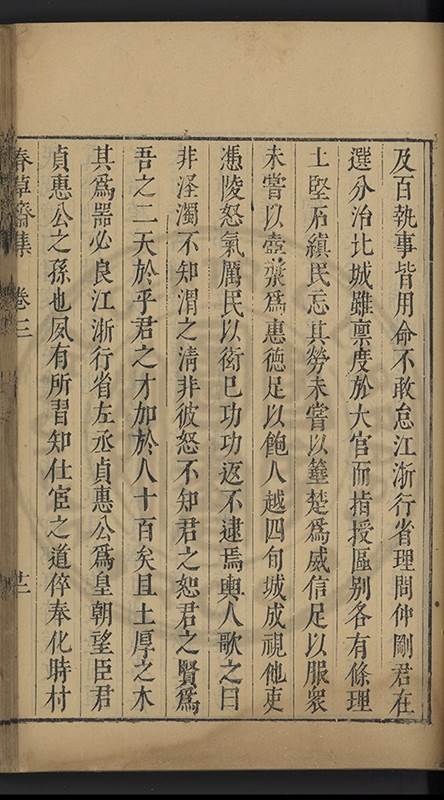 及百執事皆用命不敢怠江浙行省理問仲剛君在
選分治北城雖禀度於大官而指授區别各有條理
土堅石縝民忘其勞未嘗以箠楚爲威信足以服衆
未嘗以壺漿爲惠德足以飽人越四旬城成視他吏
憑陵怒氣厲民以衒巳功功返不逮焉輿人歌之曰
非涇濁不知渭之清非彼怒不知君之恕君之賢爲
吾之二天於乎君之才加於人十百矣且土厚之木
其爲器必良江浙行省左丞貞惠公爲皇朝望臣君
貞惠公之孫也夙有所習知仕宦之道倅奉化時村
春草齋集 卷三 廿一